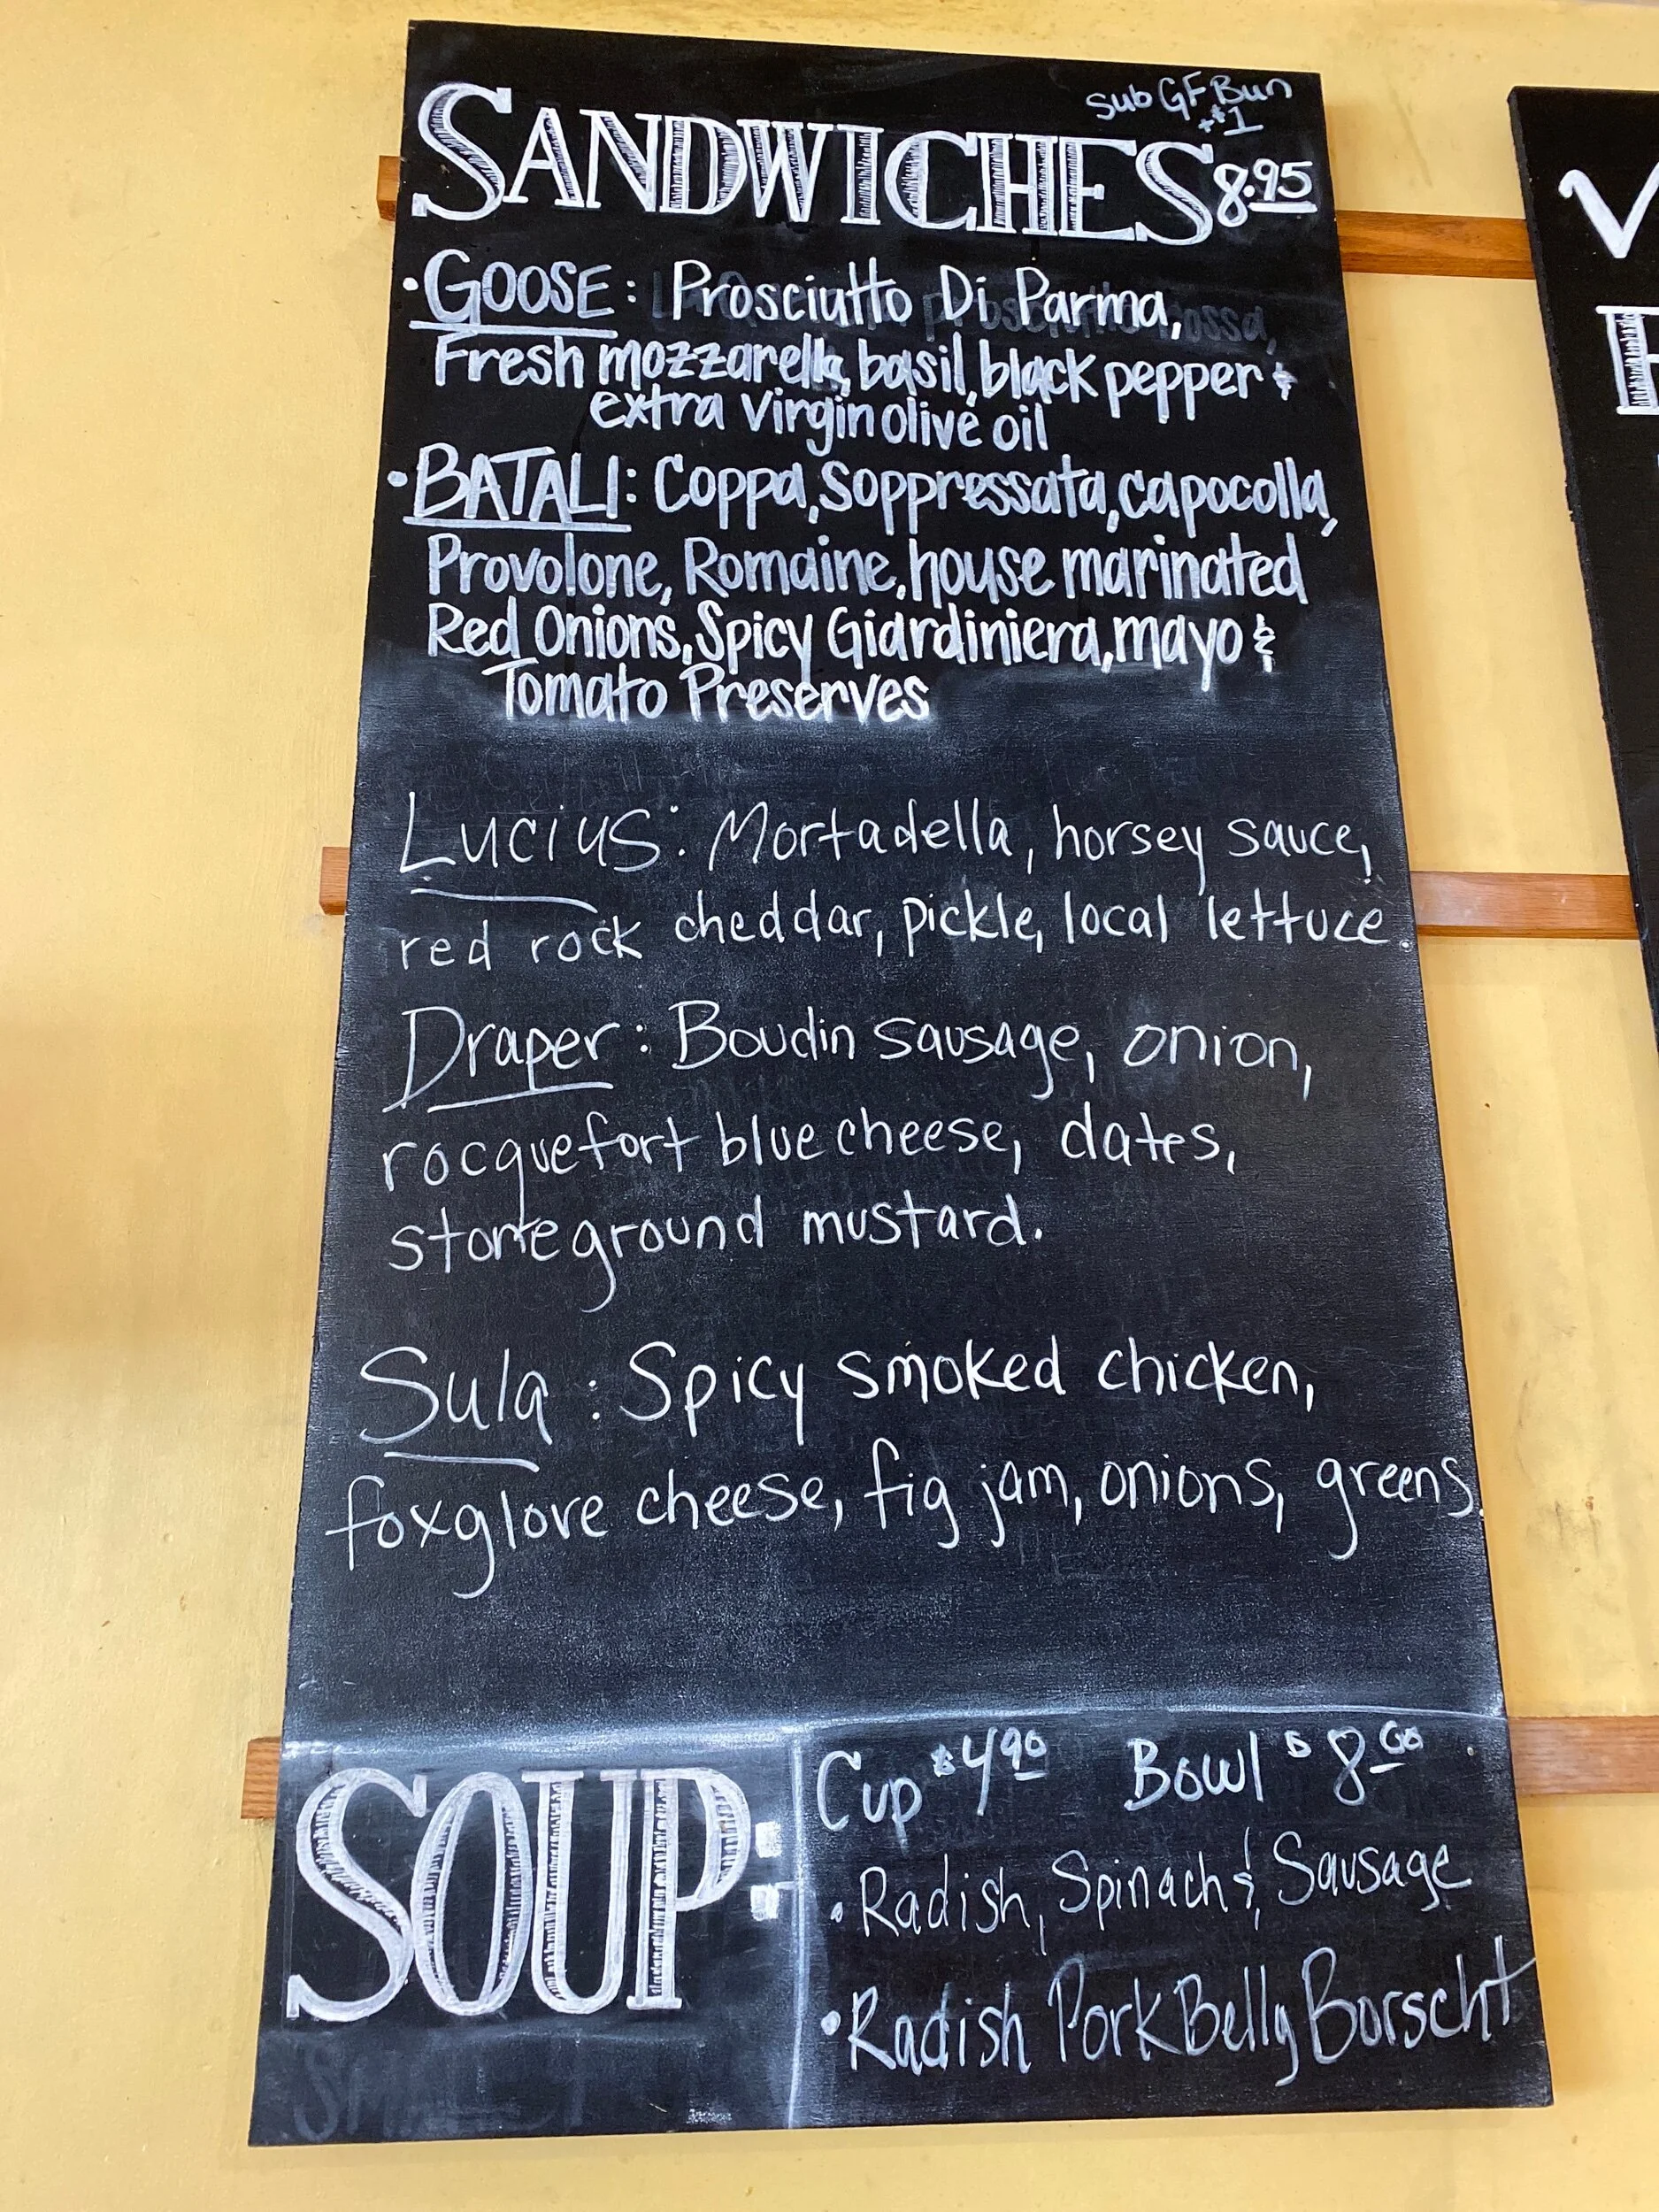 Sub GF Bun
+$1
SANDWICHES 8.95
• GOOSE: Prosciutto Di Parma,
Fresh mozzarella, basil, black pepper &
extra virgin olive oil
• BATALI: Coppa, Soppressata, capocolla,
Provolone, Romaine, house marinated
Red Onions, Spicy Giardiniera, mayo &
Tomato Preserves
Lucius: Mortadella, horsey sauce,
red rock cheddar, pickle, local lettuce.
Draper: Boudin sausage, onion,
rocquefort blue cheese, dates,
stoneground mustard.
Sula: Spicy smoked chicken,
foxglove cheese, fig jam, onions, greens.
SOUP:
Cup $4.90 Bowl $8.00
• Radish, Spinach & Sausage
• Radish Pork Belly Borscht